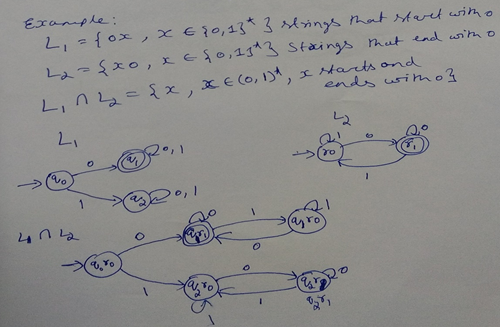 Example:
L₁ = {0x, x ∈ {0,1}*} strings that start with 0
L₂ = {x0, x ∈ {0,1}*} Strings that end with 0
L₁ ∩ L₂ = {x, x ∈ (0,1)*, x starts and
ends with 0}
L₁
L₂
q₀
0
q₁
0,1
1
q₂
0,1
r0
1
0
r₁
0
1
L₁ ∩ L₂
q₀r₀
0
q₁r₁
0
1
q₁r₀
1
0
1
q₂r₀
1
0
0
1
q₂r₁